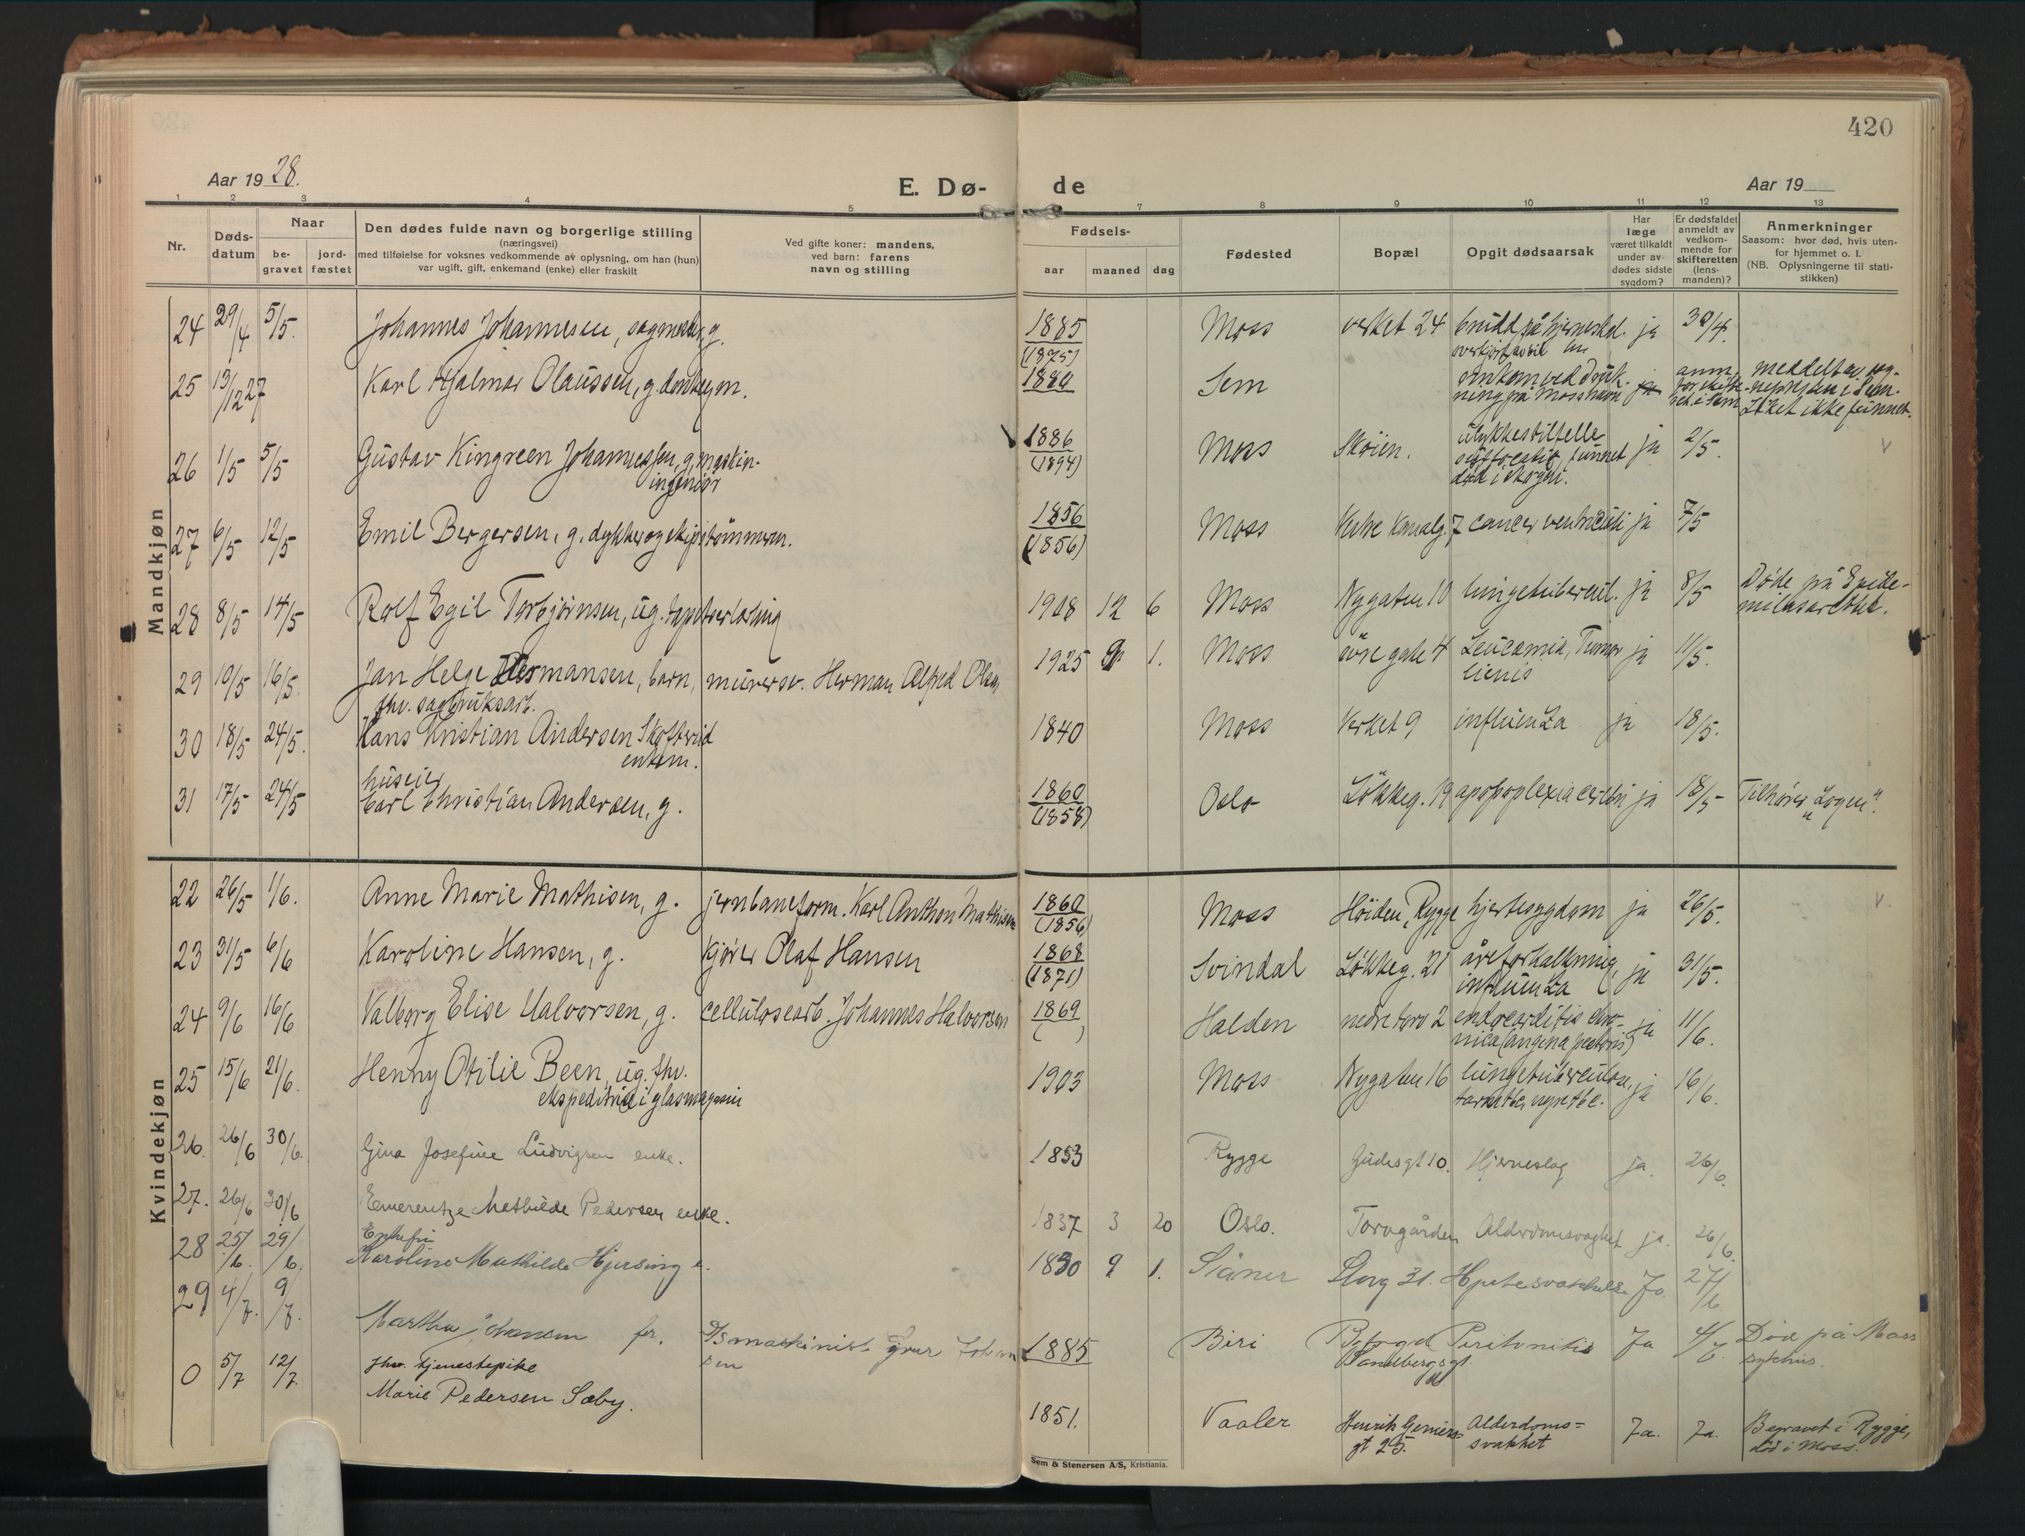 420
Aar 1928.
E. Dø- de
Aar 19
1 2 3 4 5 7 8 9 10 11 12 13
Nr.
Døds-datum
Naar
be-gravet
jord-fæstet
Den dødes fulde navn og borgerlige stilling
(næringsvei)
med tilføielse for voksnes vedkommende av oplysning, om han (hun)
var ugift, gift, enkemand (enke) eller fraskilt
Ved gifte koner: mandens,
ved barn: farens
navn og stilling
Fødsels-
aar maaned dag
Fødested
Bopæl
Opgit dødsaarsak
Har
læge
været tilkaldt
under av-
dødes sidste
sygdom?
Er dødsfaldet
anmeldt av
vedkom-
mende for
skifteretten
(lens-
manden)?
Anmerkninger
Saasom: hvor død, hvis uten-
for hjemmet o. l.
(NB. Oplysningerne til stati-
stikken)
Mandkjøn
24 29/4 5/5. Johannes Johannesen, sagmester, g. 1885 (1875) Moss verket 24 brudd på hjerneskal. ja 30/4.
overkjørt av bil
25 13/12 27 Karl Hjalmar Olaussen, g. donkeym. 1880 Sem omkom ved druk-
ning på Moss havn ja anm. for skifte-
ret. i Sem meddelt av sog-
nepresten i Sem.
Liket ikke funnet.
26 1/5 5/5 Gustav Kingreen Johannessen, g. maskin-
ingeniør 1886 (1894) Moss Skøien. ulykkestilfelle
suffocatio, funnet
død i skogen. ja 2/5.
27 6/5 12/5 Emil Bergersen, g. dykker og skipstømmerm. 1856 (1856) Moss Vestre Kanalg. 7 cancer ventriculi ja 7/5
28 8/5 14/5 Rolf Egil Torbjørnsen, ug. tapetserlærling 1908 12 6 Moss Nygaten 10 lungetubercul. ja 8/5 Døde på Epide-
milasarettet.
29 10/5 16/5. Jan Helge Hermansen, barn, murersv. Herman Alfred Olsen 1925 1. Moss øvre gate 4 Leucæmia, Tumor
lienis ja 11/5.
30 18/5 24/5. fhv. sagbruksarb.
Hans Kristian Andersen Skofterud
enkem. 1840 Moss Verket 9 influenza ja 18/5.
31 17/5 24/5 huseier
Carl Christian Andersen, g. 1860 (1858) Oslo Løkkeg. 19 apopoplexia cerebri ja 18/5 Tilhører „Logen".
Kvindekjøn
22 26/5 1/6. Anne Marie Mathisen, g. jernbaneform. Karl Anthon Mathisen 1860 (1856) Moss Høiden, Rygge hjertesygdom ja 26/5.
23 31/5 6/6 Karoline Hansen, g. kjører Olaf Hansen 1868 (1871) Svindal Løkkeg. 21 åreforkalkning,
influenza ja 31/5.
24 9/6 16/6 Valborg Elise Halvorsen, g. cellulosearb. Johannes Halvorsen 1869 ( ) Halden nedre torv 2 endocarditis chro-
nica (angina pectoris) ja 11/6.
25 15/6 21/6. Henny Otilie Been, ug. fhv.
ekspeditrise i glasmagasin 1903 Moss Nygaten 16 lungetuberculose,
tarmtbc, nyretbc. ja 16/6.
26. 26/6 30/6. Gina Josefine Ludvigsen enke. 1853 Rygge Gudesgt 10. Hjerneslag ja. 26/6.
27. 26/6 30/6 Emerentze Mathilde Pedersen enke. 1837 3 20 Oslo. Torvgården Alderdomsvaghet ja. 26/6.
28 25/6. 29/6. Enkefru
Karoline Mathilde Hjersing e. 1830 9 1. Storg 31. Hjertesvakhet Ja. 27/6.
29 4/7. 9/7. Martha Johansen fr. maskinist Johan
sen 1885 Biri Byfoged
Sandbergsgt Peritonitis Ja 4/7. Død på Moss
sykehus.
0 5/7 12/7. fhv. tjenestepike
Marie Pedersen Sæby. 1851. Vaaler Henrik Gerners
gt 25. Alderdoms=
svakhet Ja. Ja. Begravet i Rygge,
død i Moss.
Sem & Stenersen A/S, Kristiania.